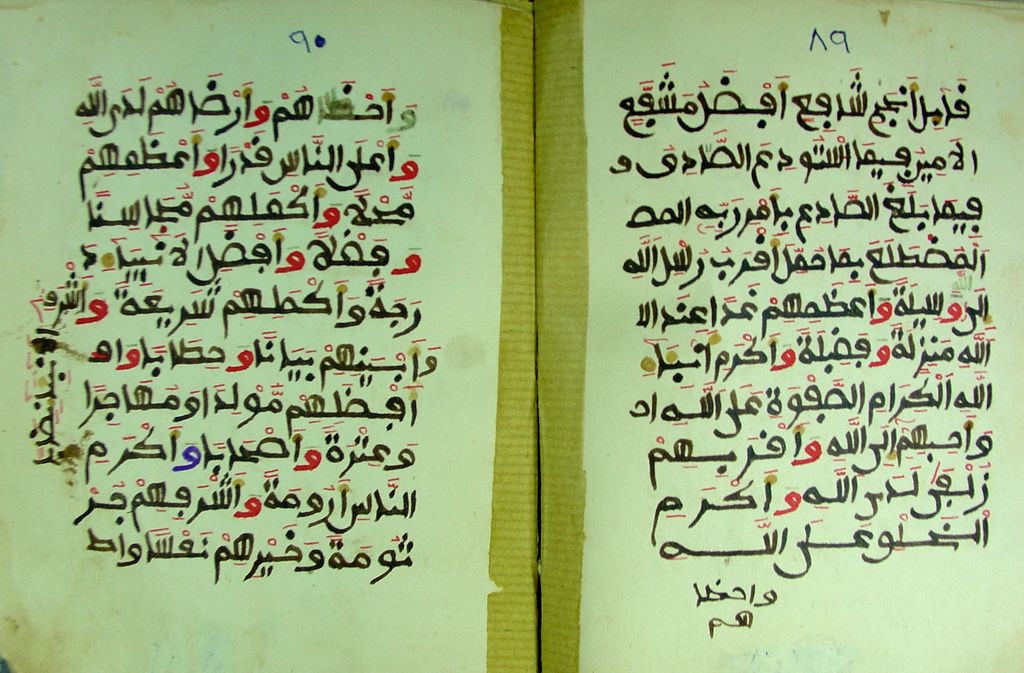 ٨٩
قايل أنجح شافع أفضل مشفع
الامين فيما استودع الصادق و
فيما بلغ الصادع بامر ربه المض
المضطلع بما حمل أقرب رسل الله
الى وسيلة واعظمهم غدا عند الا
الله منزلة وفضيلة واكرم انبياء
الله الكرام الصفوة على الله ا
واحبهم الى الله واقربهم
زلفى لدى الله واكرم
الخلق على الله
واحظا
هم
٩٠
واحظاهم وارضاهم لدى الله
واعلى الناس قدرا واعظمهم
محلا واكملهم محاسنا
وفضلا وافضل الانبياء د
رجة واكملهم شريعة واشرف
الانبياء نصابا
وابينهم بيانا وخطابا وا
افضلهم مولدا ومهاجرا
وعترة واصحابا واكرم
الناس ارومة واشرفهم جر
ثومة وخيرهم نفسا واط